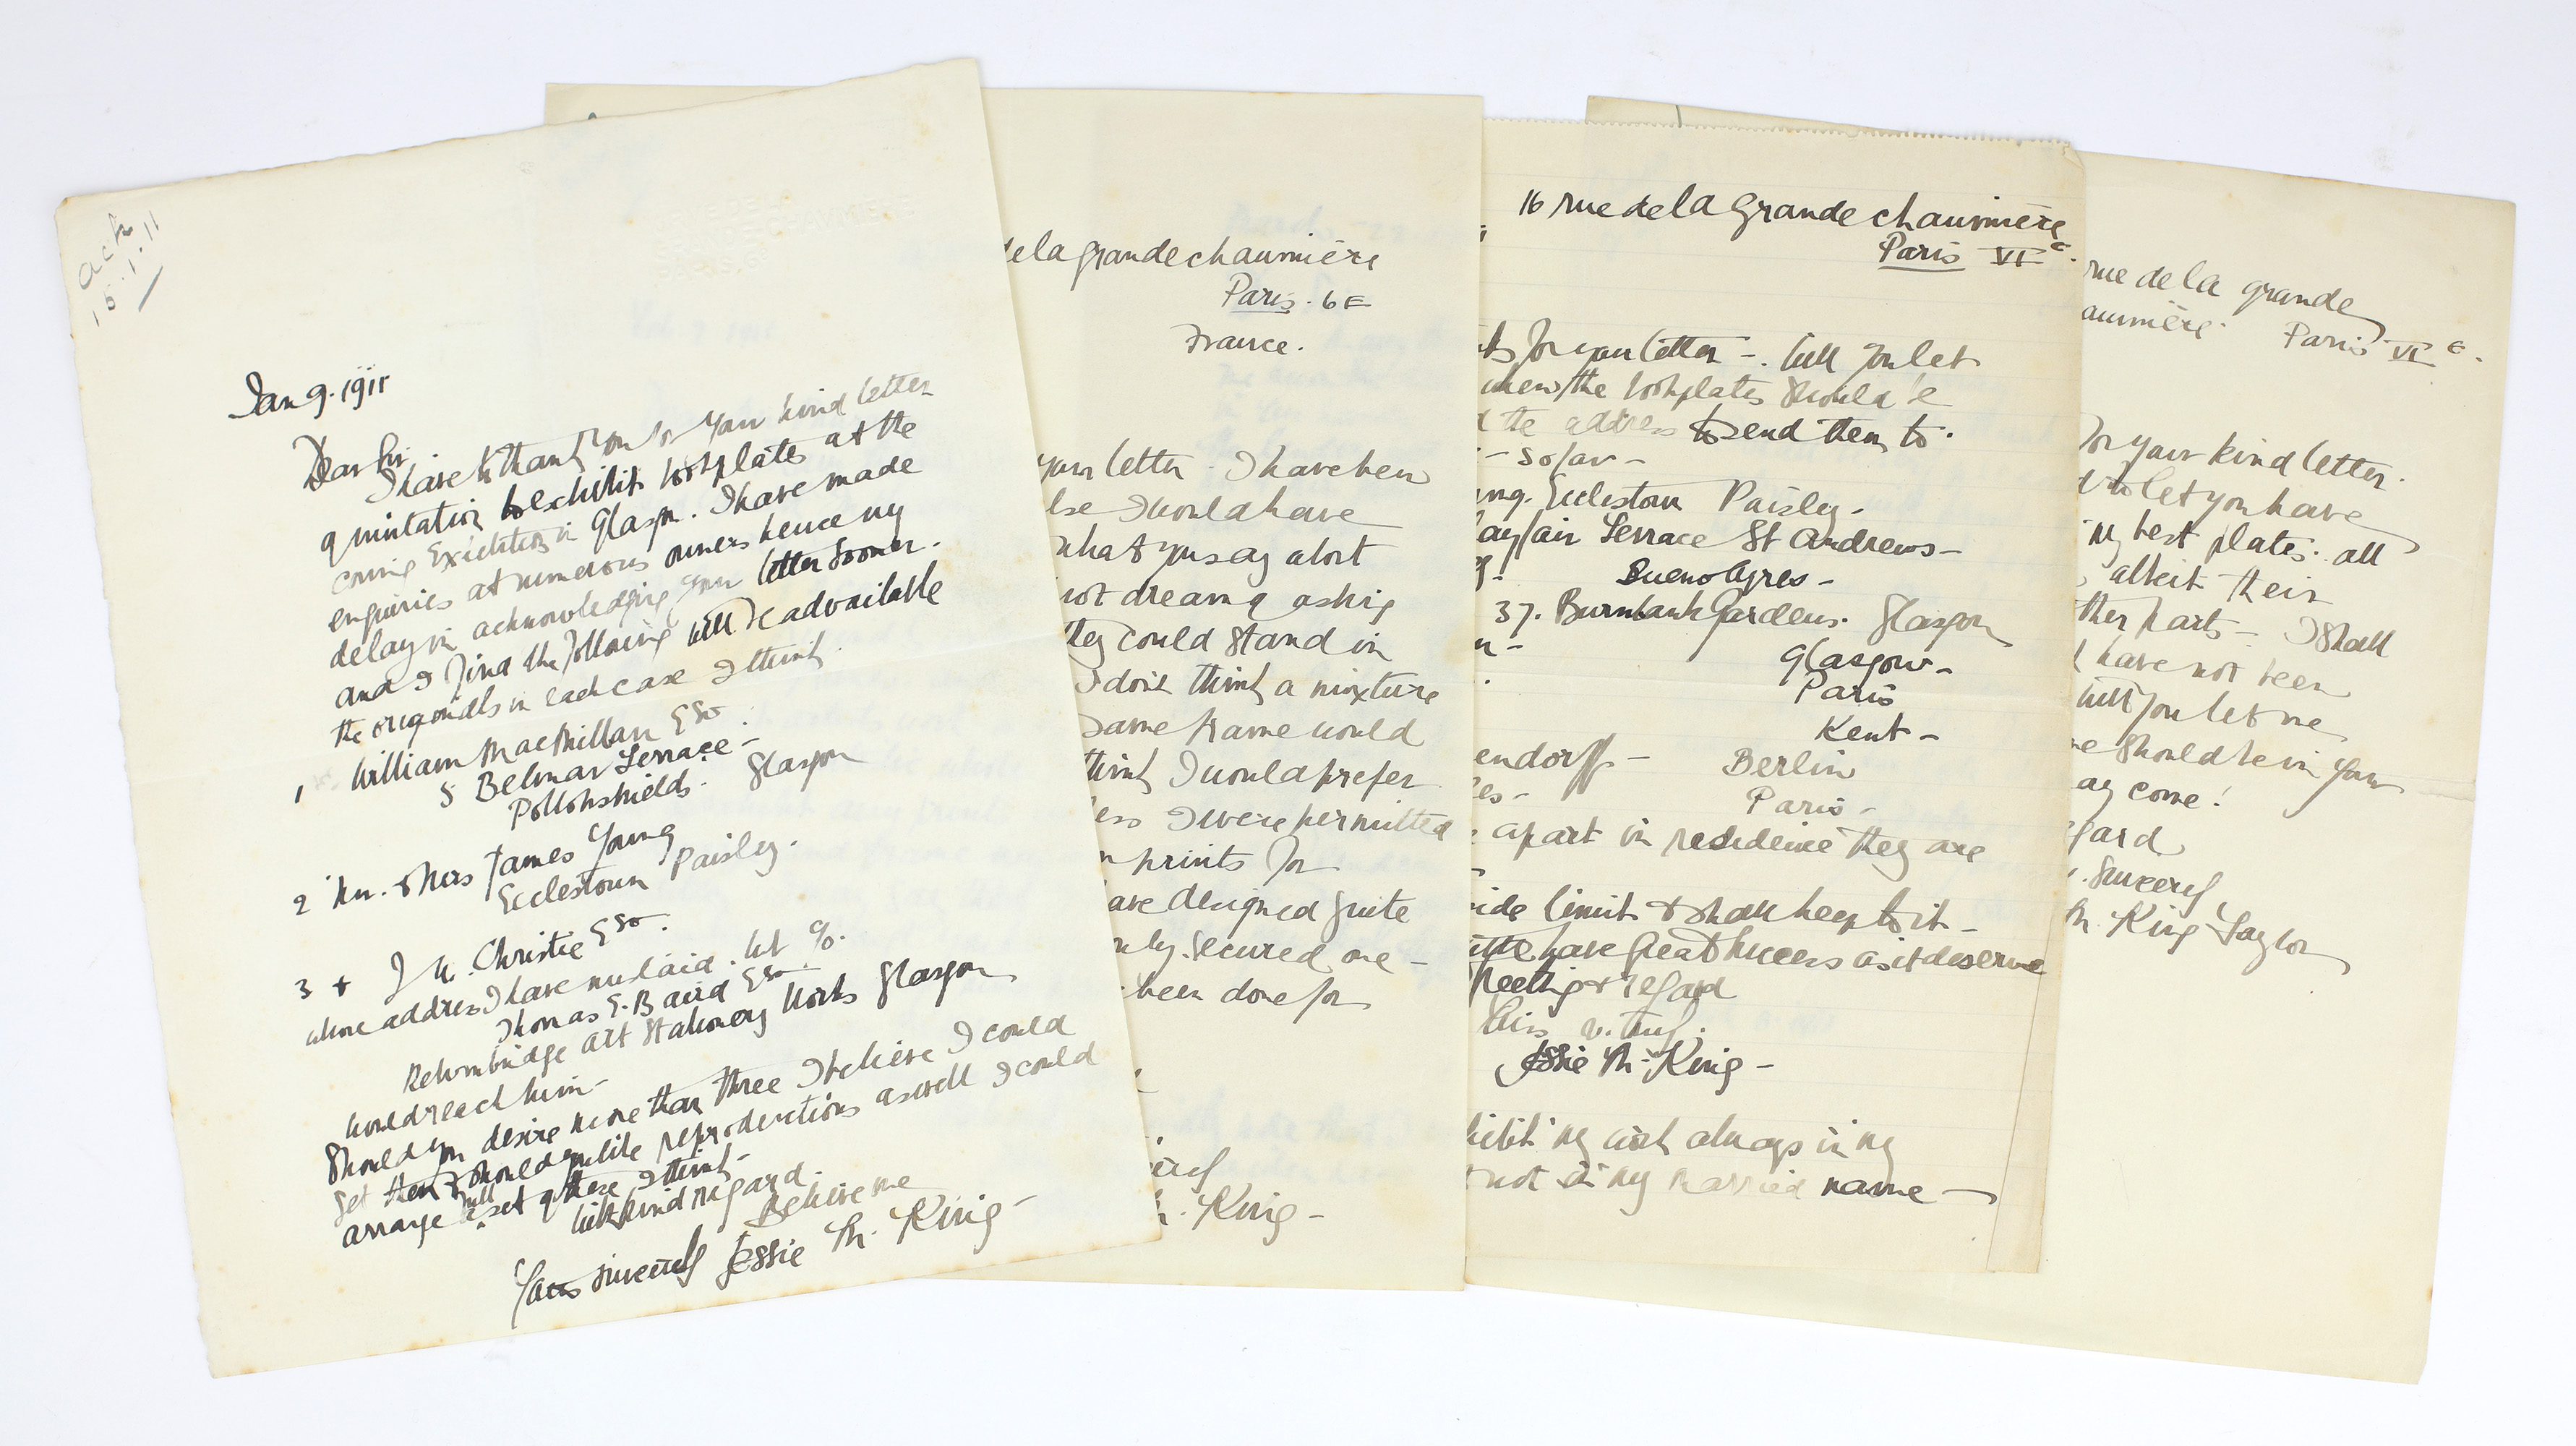 ack
15.1.11
Jan 9. 1911
Dear Sir.
I have to thank you for your kind letter
of invitation to exhibit bookplates at the
coming Exhibition in Glasgow. I have made
enquiries at numerous owners hence my
delay in acknowledging your letter sooner.
and I find the following will be advailable
the origonals in each case I think.
1 William MacMillan Esq.
5 Belmar Terrace -
Pollokshields. Glasgow
2 Mr. & Mrs James Young
Ecclestoun Paisley.
3 + J W. Christie Esq.
whose address I have mislaid. but c/o.
Thomas E. Baird Esq.
Kelvinbridge Art Stationery Works Glasgow
would reach him -
Should you desire more than three I believe I could
get them & should you like reproductions as well I could
arrange a full set of these I think -
With kind regard.
Believe me
Yours sincerely Jessie M. King -
de la grande chaumière
Paris. 6E
France.
your letter - I have been
else I would have
what you say about
not dream of asking
they could stand in
I don't think a mixture
same frame would
think I would prefer
less I were permitted
prints for
have designed quite
only. secured one -
been done for
M. King -
16 rue de la grande chaumière
Paris VIe.
for your letter -. Will you let
when the bookplates should be
the address to send them to.
- so far -
Ecclestoun Paisley -
Playfair Terrace St Andrews -
Buenos Ayres -
37. Burnbank Gardens. Glasgow
Glasgow -
Paris
Kent -
endorff - Berlin
Paris -
apart in residence they are
limit & shall keep to it -
have great success as it deserves
greeting & regard
Jessie M. King -
my work always in my
not in my married name -
rue de la grande
chaumière Paris VI E.
for your kind letter.
to let you have
my best plates. all
albeit their
other parts - I shall
have not been
Will you let me
should be in your
may come!
regard
v. Sincerely
M. King Taylor